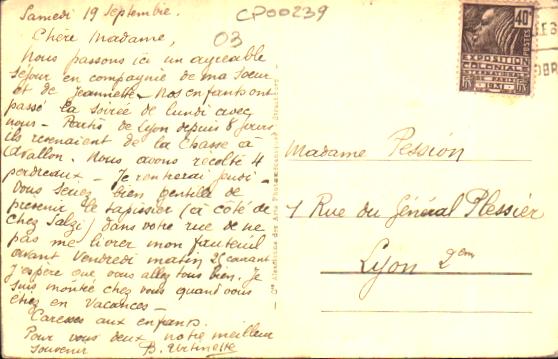 Samedi 19 Septembre.
CP00239
03
Chère Madame,
Nous passons ici un agreable
séjour en compagnie de ma Soeur
et de Jeannette - Nos enfants ont
passé la soirée de lundi avec
nous - Partis de Lyon depuis 8 jours
ils revenaient de la Chasse à
Avallon. Nous avons récolté 4
perdreaux - Je rentrerai jeudi -
Vous seriez bien gentille de
prévenir le tapissier (à côté de
chez Salzi) dans votre rue de ne
pas me livrer mon fauteuil
avant Vendredi matin 25 courant
J'espère que vous allez tous bien. Je
suis montée chez vous quand vous
étiez en Vacances -
Caresses aux enfants.
Pour vous deux notre meilleur
souvenir
Madame Pession
1 Rue du Général Plessier
Lyon 2em
40c
POSTES
EXPOSITION
COLONIALE
INTERNATIONALE
PARIS 1931